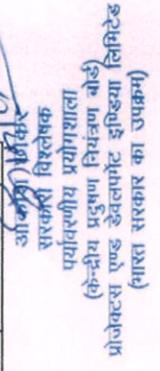 सरकारी विश्लेषक
पर्यावरणीय प्रयोगशाला
(केन्द्रीय प्रदुषण नियंत्रण बोर्ड)
प्रोजेक्टस एण्ड डेवलपमेंट इण्डिया लिमिटेड
(भारत सरकार का उपक्रम)